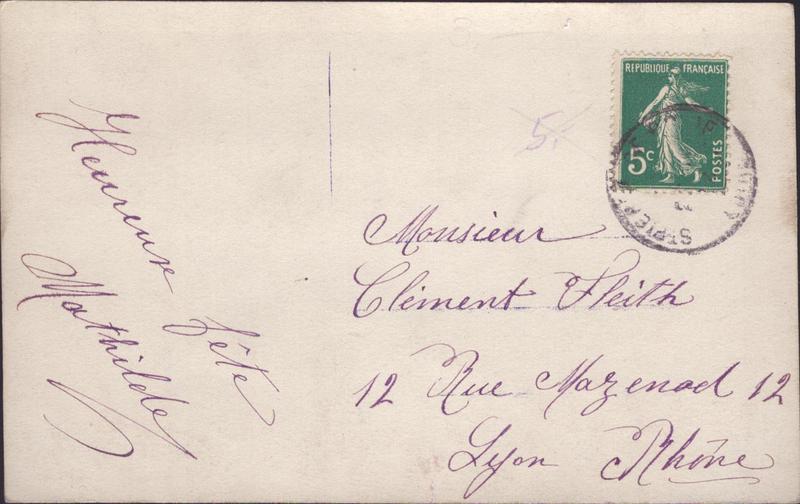 Heureuse fête
Mathilde
5.
RÉPUBLIQUE FRANÇAISE
5c
POSTES
Monsieur
Clément Fleith
12 Rue Mazenod 12
Lyon Rhône